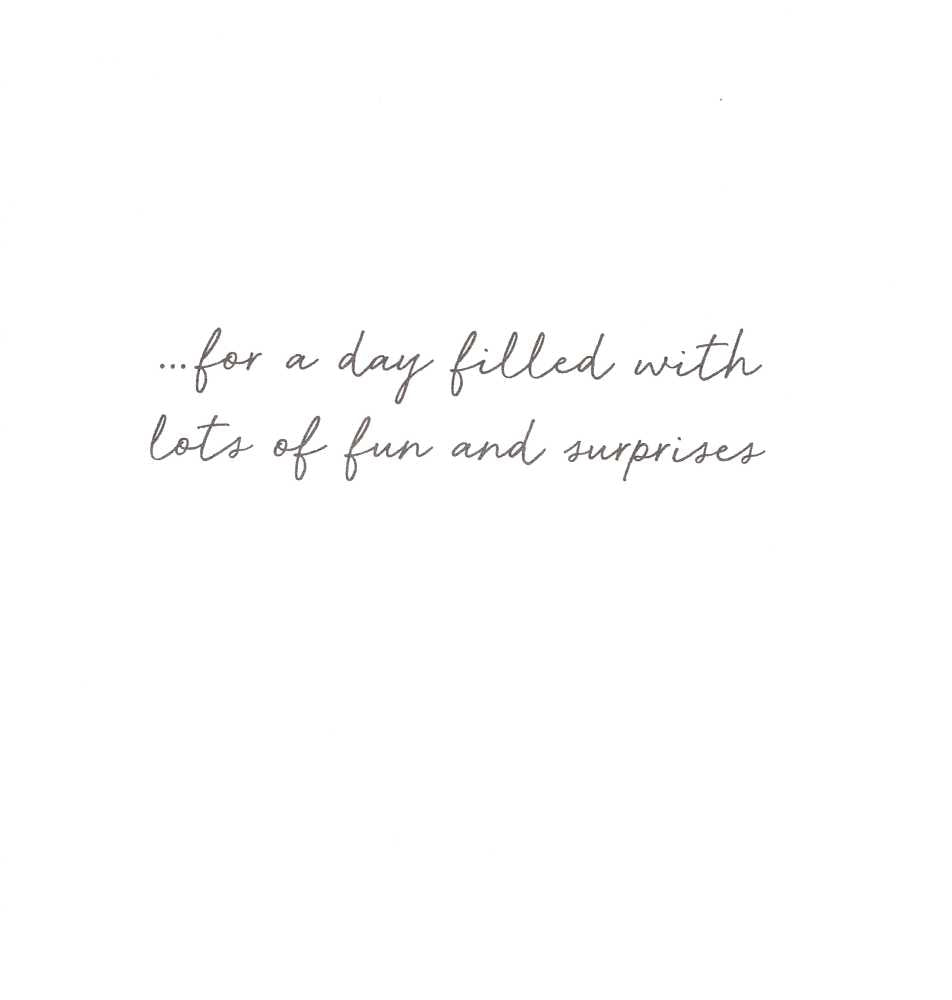 ...for a day filled with
lots of fun and surprises